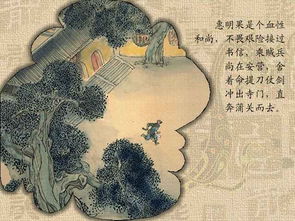 惠明果是个血性
和尚，不畏艰险接过
书信，乘贼兵
尚在安营，舍
着命提刀仗剑
冲出寺门，直
奔蒲关而去。